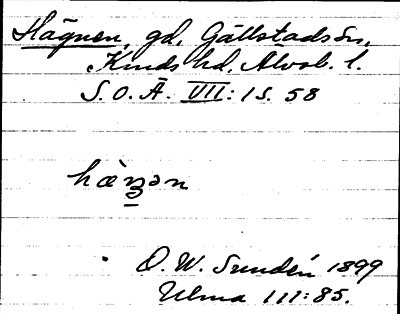 Hägnen, gd. Gällstads sn,
Kinds hd, Älvsb. l.
S.O.Ä. VII: 1 S. 58
O. W. Sundén 1899
Ulma 111:85.